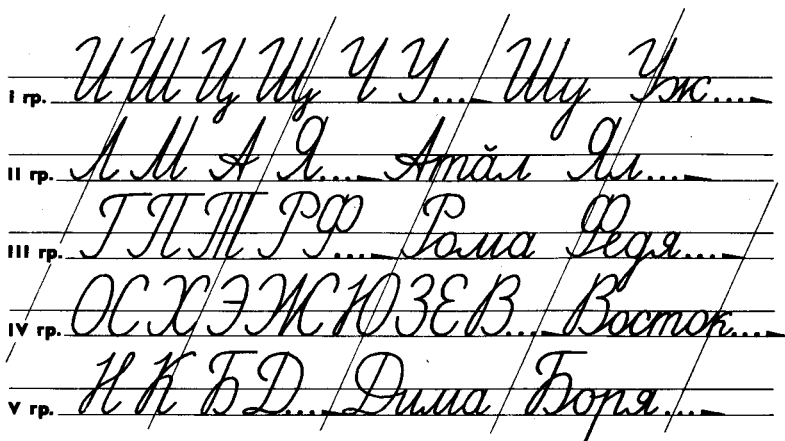 I гр. И Ш Ц Щ Ч У.... Шу Уж....
II гр. Л М А Я.... Атӑл Ял....
III гр. Г П Т Р Ф.... Рома Федя....
IV гр. О С Х Э Ж Ю З Е В.... Восток....
V гр. Н К Б Д.... Дима Боря....